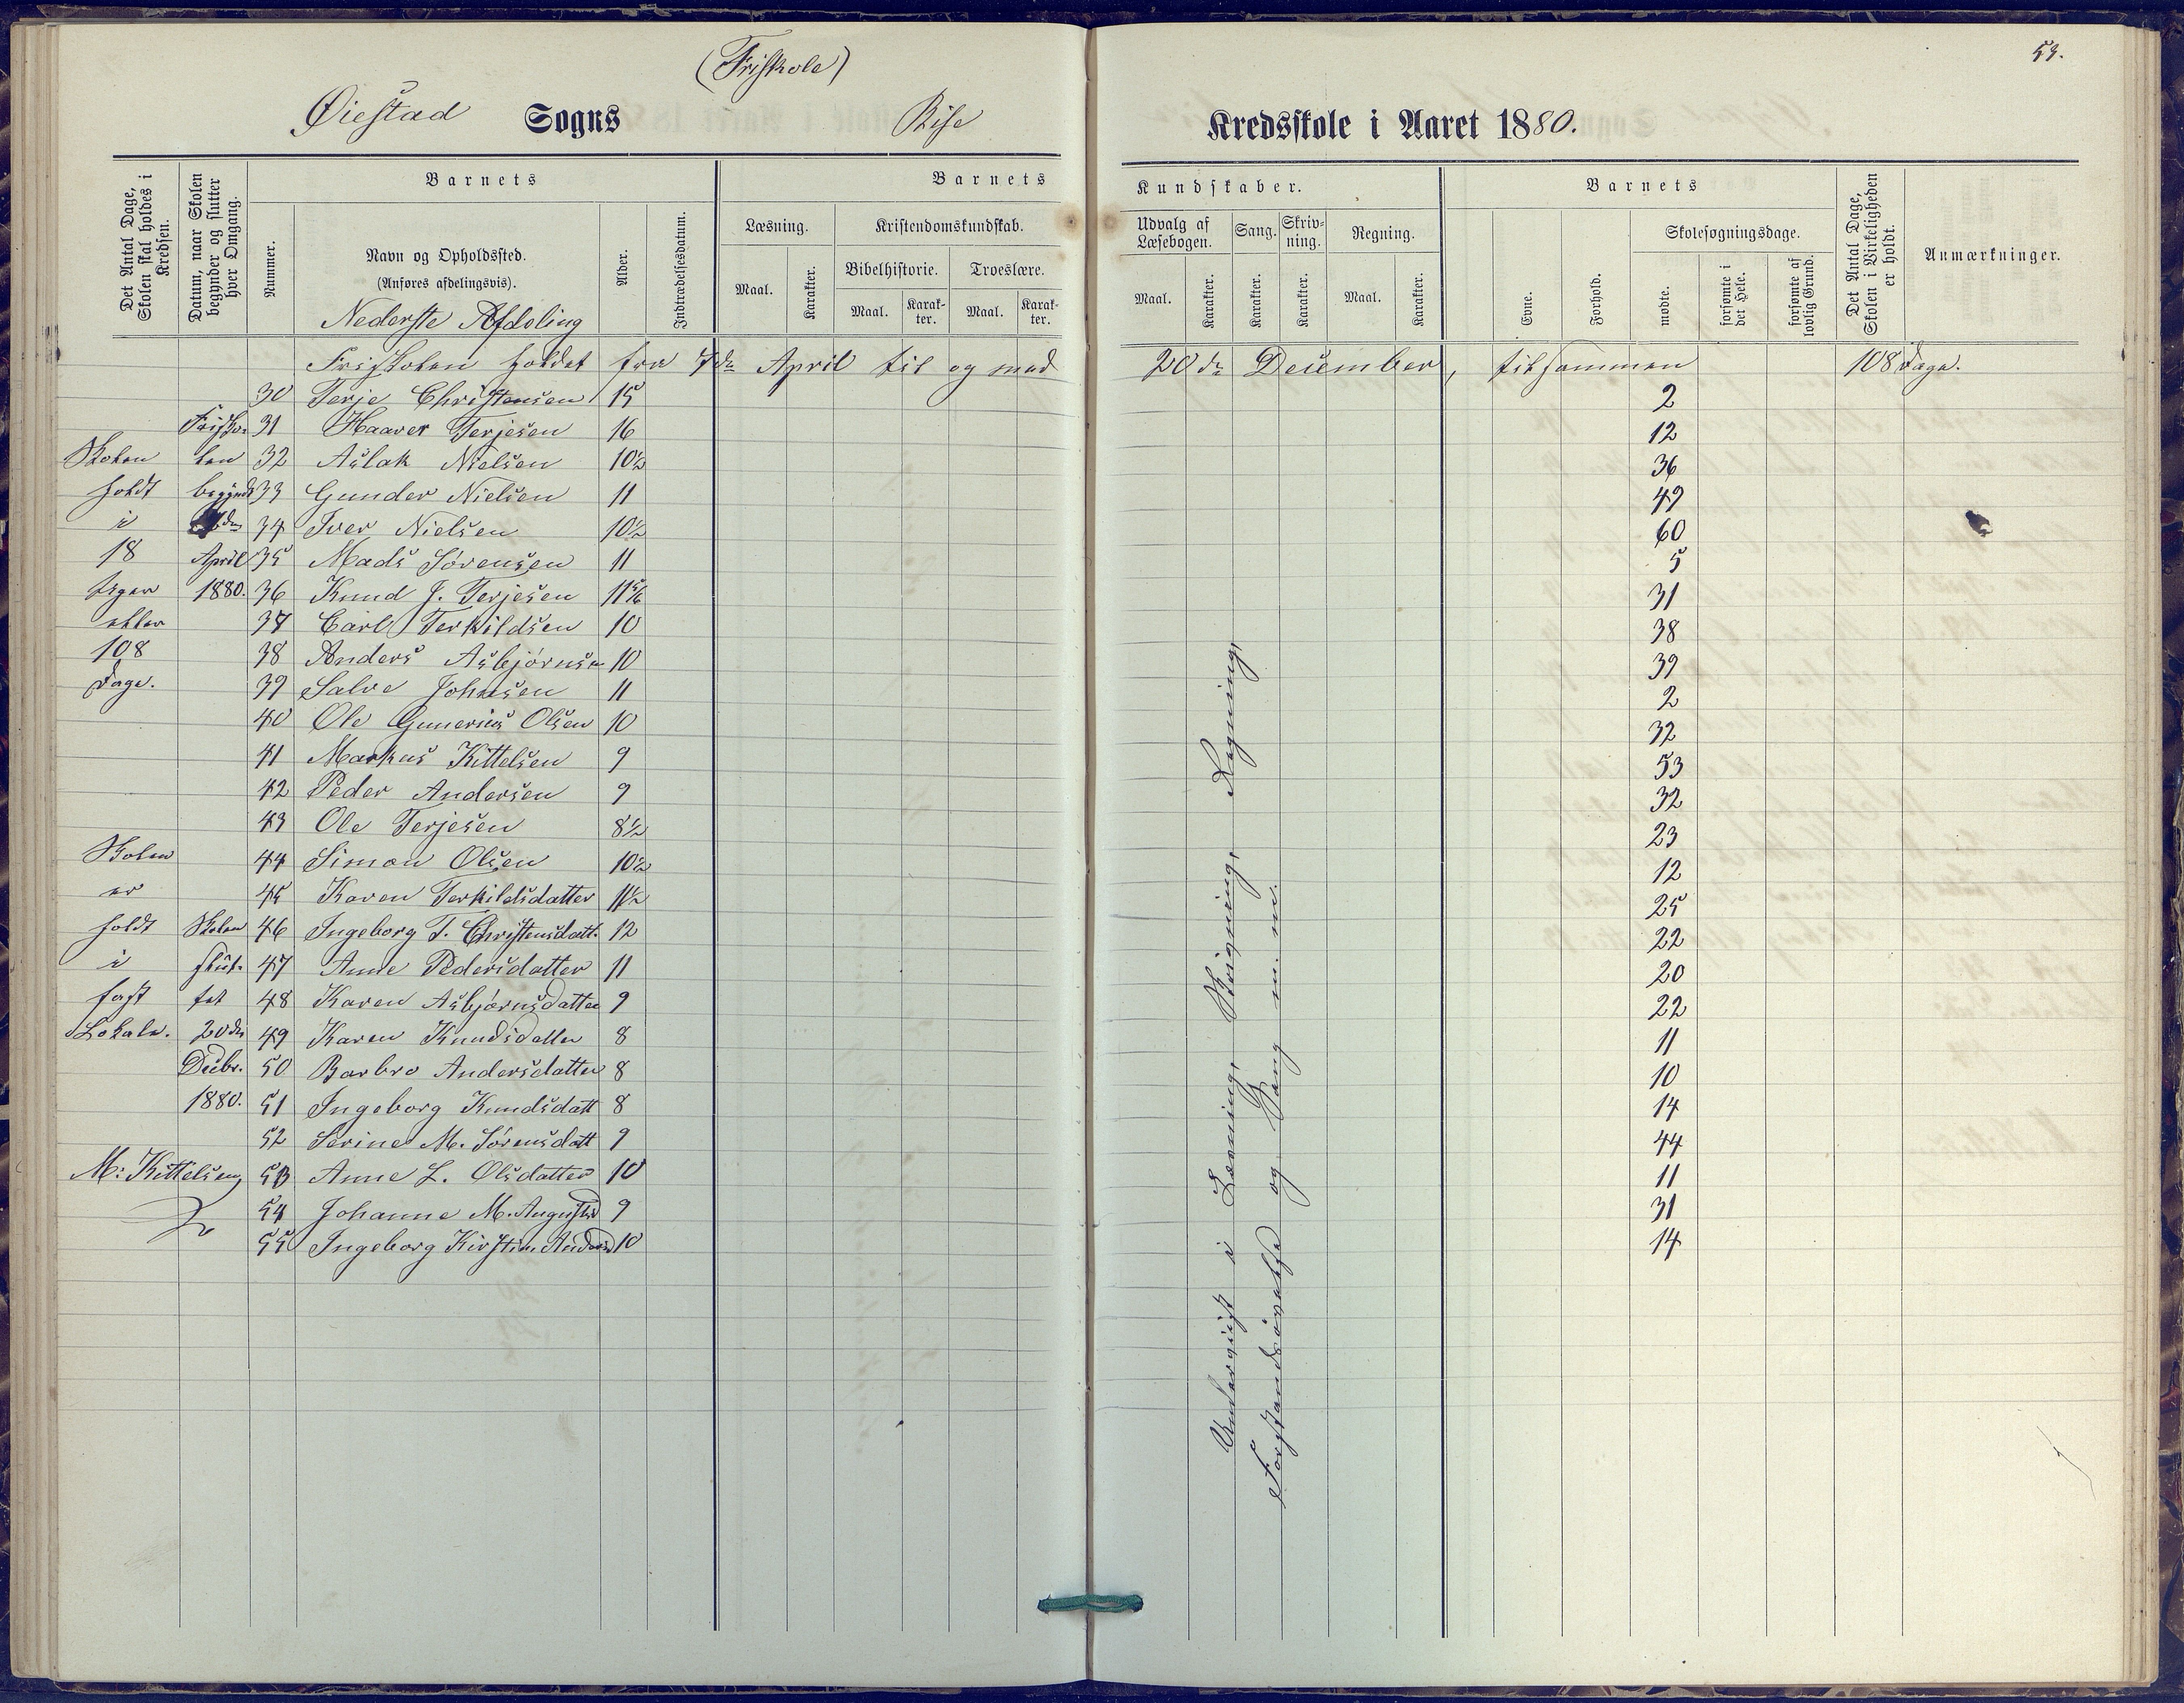 (Friskole)
53.
Øiestad Sogns Rise Kredsskole i Aaret 1880.
Det Antal Dage, Skolen skal holdes i Kredsen.
Datum, naar Skolen begynder og slutter hver Omgang.
Barnets
Nummer.
Navn og Opholdssted.
(Anføres afdelingsvis).
Nederste Afdeling
Alder.
Indtrædelsesdatum.
Barnets Kundskaber.
Læsning.
Maal.
Karakter.
Kristendomskundskab.
Bibelhistorie.
Maal.
Karakter.
Troeslære.
Maal.
Karakter.
Udvalg af Læsebogen.
Maal.
Karakter.
Sang.
Karakter.
Skrivning.
Karakter.
Regning.
Maal.
Karakter.
Barnets
Evne.
Forhold.
Skolesøgningsdage.
mødte.
forsømte i det Hele.
forsømte af lovlig Grund.
Det Antal Dage, Skolen i Virkeligheden er holdt.
Anmærkninger.
Friskolen holdet fra 7de April til og med 20de December, tilsammen 108 Dage.
30 Terje Christensen 15 2
Frisko- 31 Haaver Terjesen 16 12
Skolen len 32 Aslak Nielsen 10½ 36
holdt begyndt 33 Gunder Nielsen 11 49
i 7den 34 Iver Nielsen 10½ 60
18 April 35 Mads Sørensen 11 5
Uger 1880. 36 Knud J. Terjesen 11 5/6 31
eller 37 Carl Terkildsen 10 38
108 38 Anders Asbjørnsen 10 39
Dage. 39 Salve Johnsen 11 2
40 Ole Gunerius Olsen 10 32
41 Markus Kittelsen 9 53
42 Peder Andersen 9 32
43 Ole Terjesen 8½ 23
Skolen 44 Simon Olsen 10½ 12
er 45 Karen Terkildsdatter 11½ 25
holdt Skolen 46 Ingeborg T. Christensdatt. 12 22
i slut- 47 Anne Pedersdatter 11 20
fast tet 48 Karen Asbjørnsdatter 9 22
Lokale. 20de 49 Karen Knudsdatter 8 11
Decbr. 50 Barbro Andersdatter 8 10
1880. 51 Ingeborg Knudsdatt 8 14
52 Serine M. Sørensdatt 9 44
M. Kittelsen 53 Anne L. Olsdatter 10 11
54 Johanne M. Augustsd 9 31
55 Ingeborg Kirstine Andersd 10 14
Undervist i Læsning, Skrivning, Regning,
Forstandsøvelse og Sang m. m.